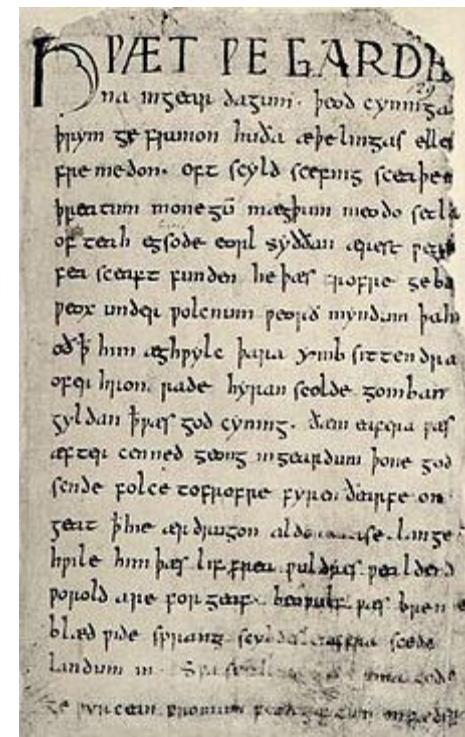 HǷÆT ǷE GARDE
na ingear dagum. þeod cyninga
þrym ge frunon huða æþelingas elle
fremedon. oft scyld scefing sceaþe
þreatum monegū mægþum meodo setla
of teah egsode eorl syððan ærest ƿear
fea sceaft funden he þæs frofre geba
ƿeox under ƿolcnum ƿeorð myndum þah
oð ꝥ him æghƿylc þara ymb sittendra
ofer hron rade hyran scolde gomban
gyldan ꝥ ƿæs god cyning. ðæm eafera ƿæs
æfter cenned geong ingeardum þone god
sende folce tofrofre fyren ðearfe on
geat ꝥ hie ær drugon lange
hƿile him þæs lif frea ƿuldres ƿealdend
ƿorold are for geaf. beoƿulf ƿæs breme
blæd ƿide sprang scyldes eafera scede
landum in. Sƿa guma gode
ge ƿyrcean fromum feoh giftum